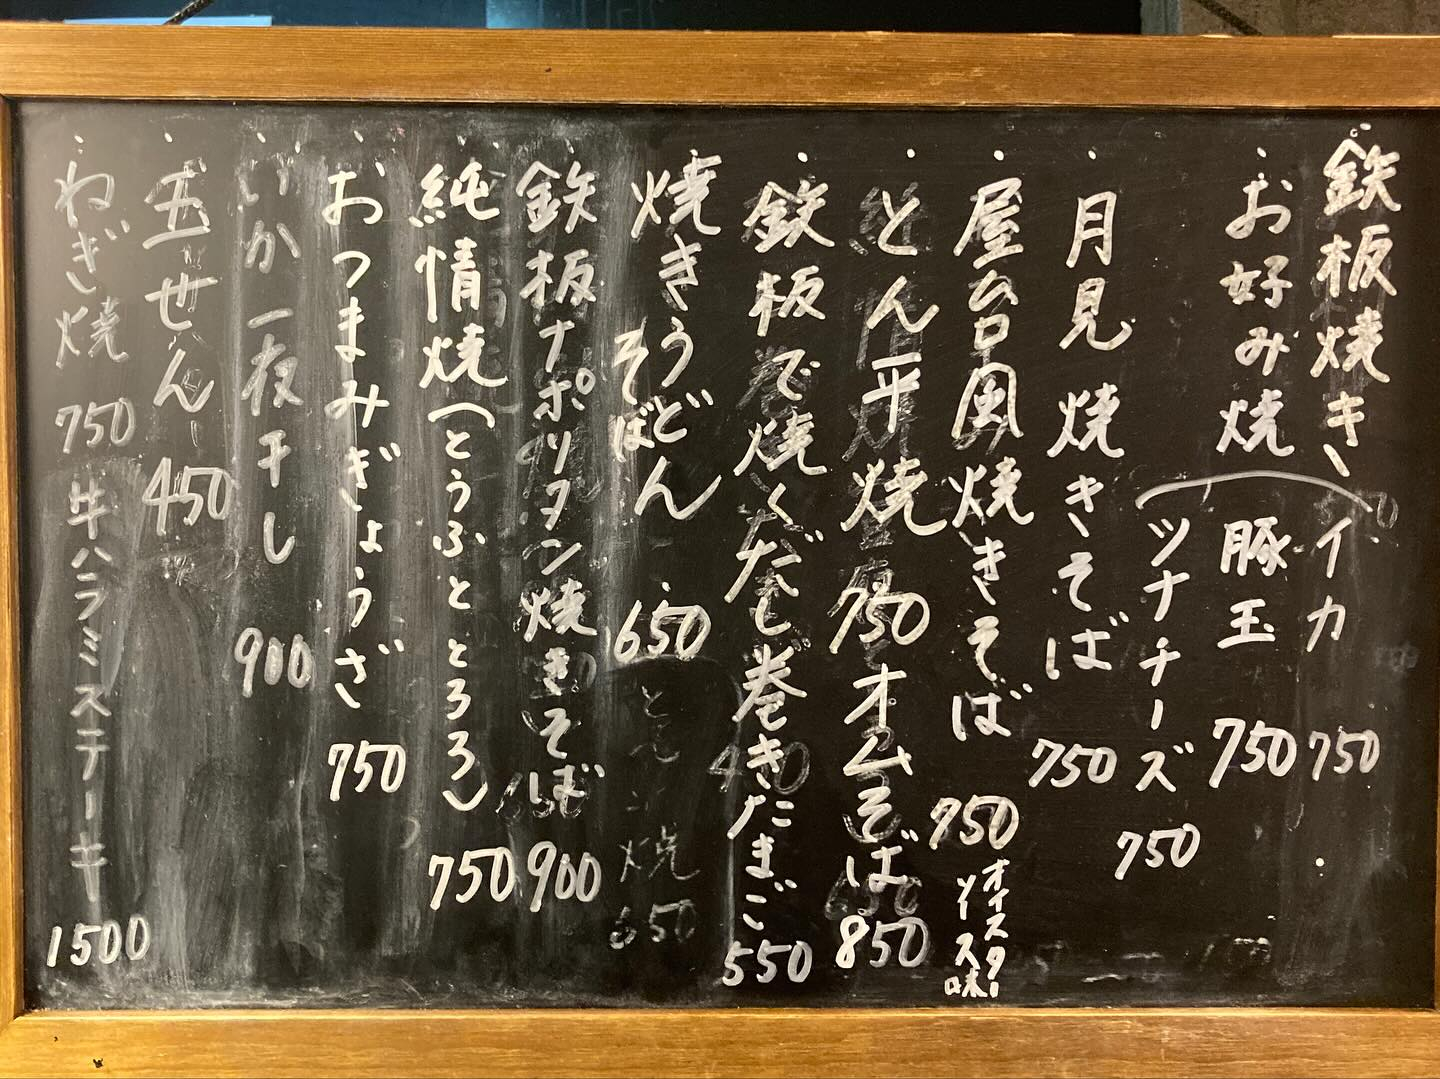 鉄板焼き
お好み焼
イカ 750
豚玉 750
ツナチーズ 750
月見焼きそば 750
屋台風焼きそば 750
オイスター
ソース味
とん平焼 750
オムそば 850
鉄板で焼くだし巻きたまご 550
焼きうどん
そば
650
鉄板ナポリタン焼きそば 900
純情焼(とうふととろろ) 750
おつまみぎょうざ 750
いか一夜干し 900
玉せん 450
ねぎ焼 750
牛ハラミステーキ 1500